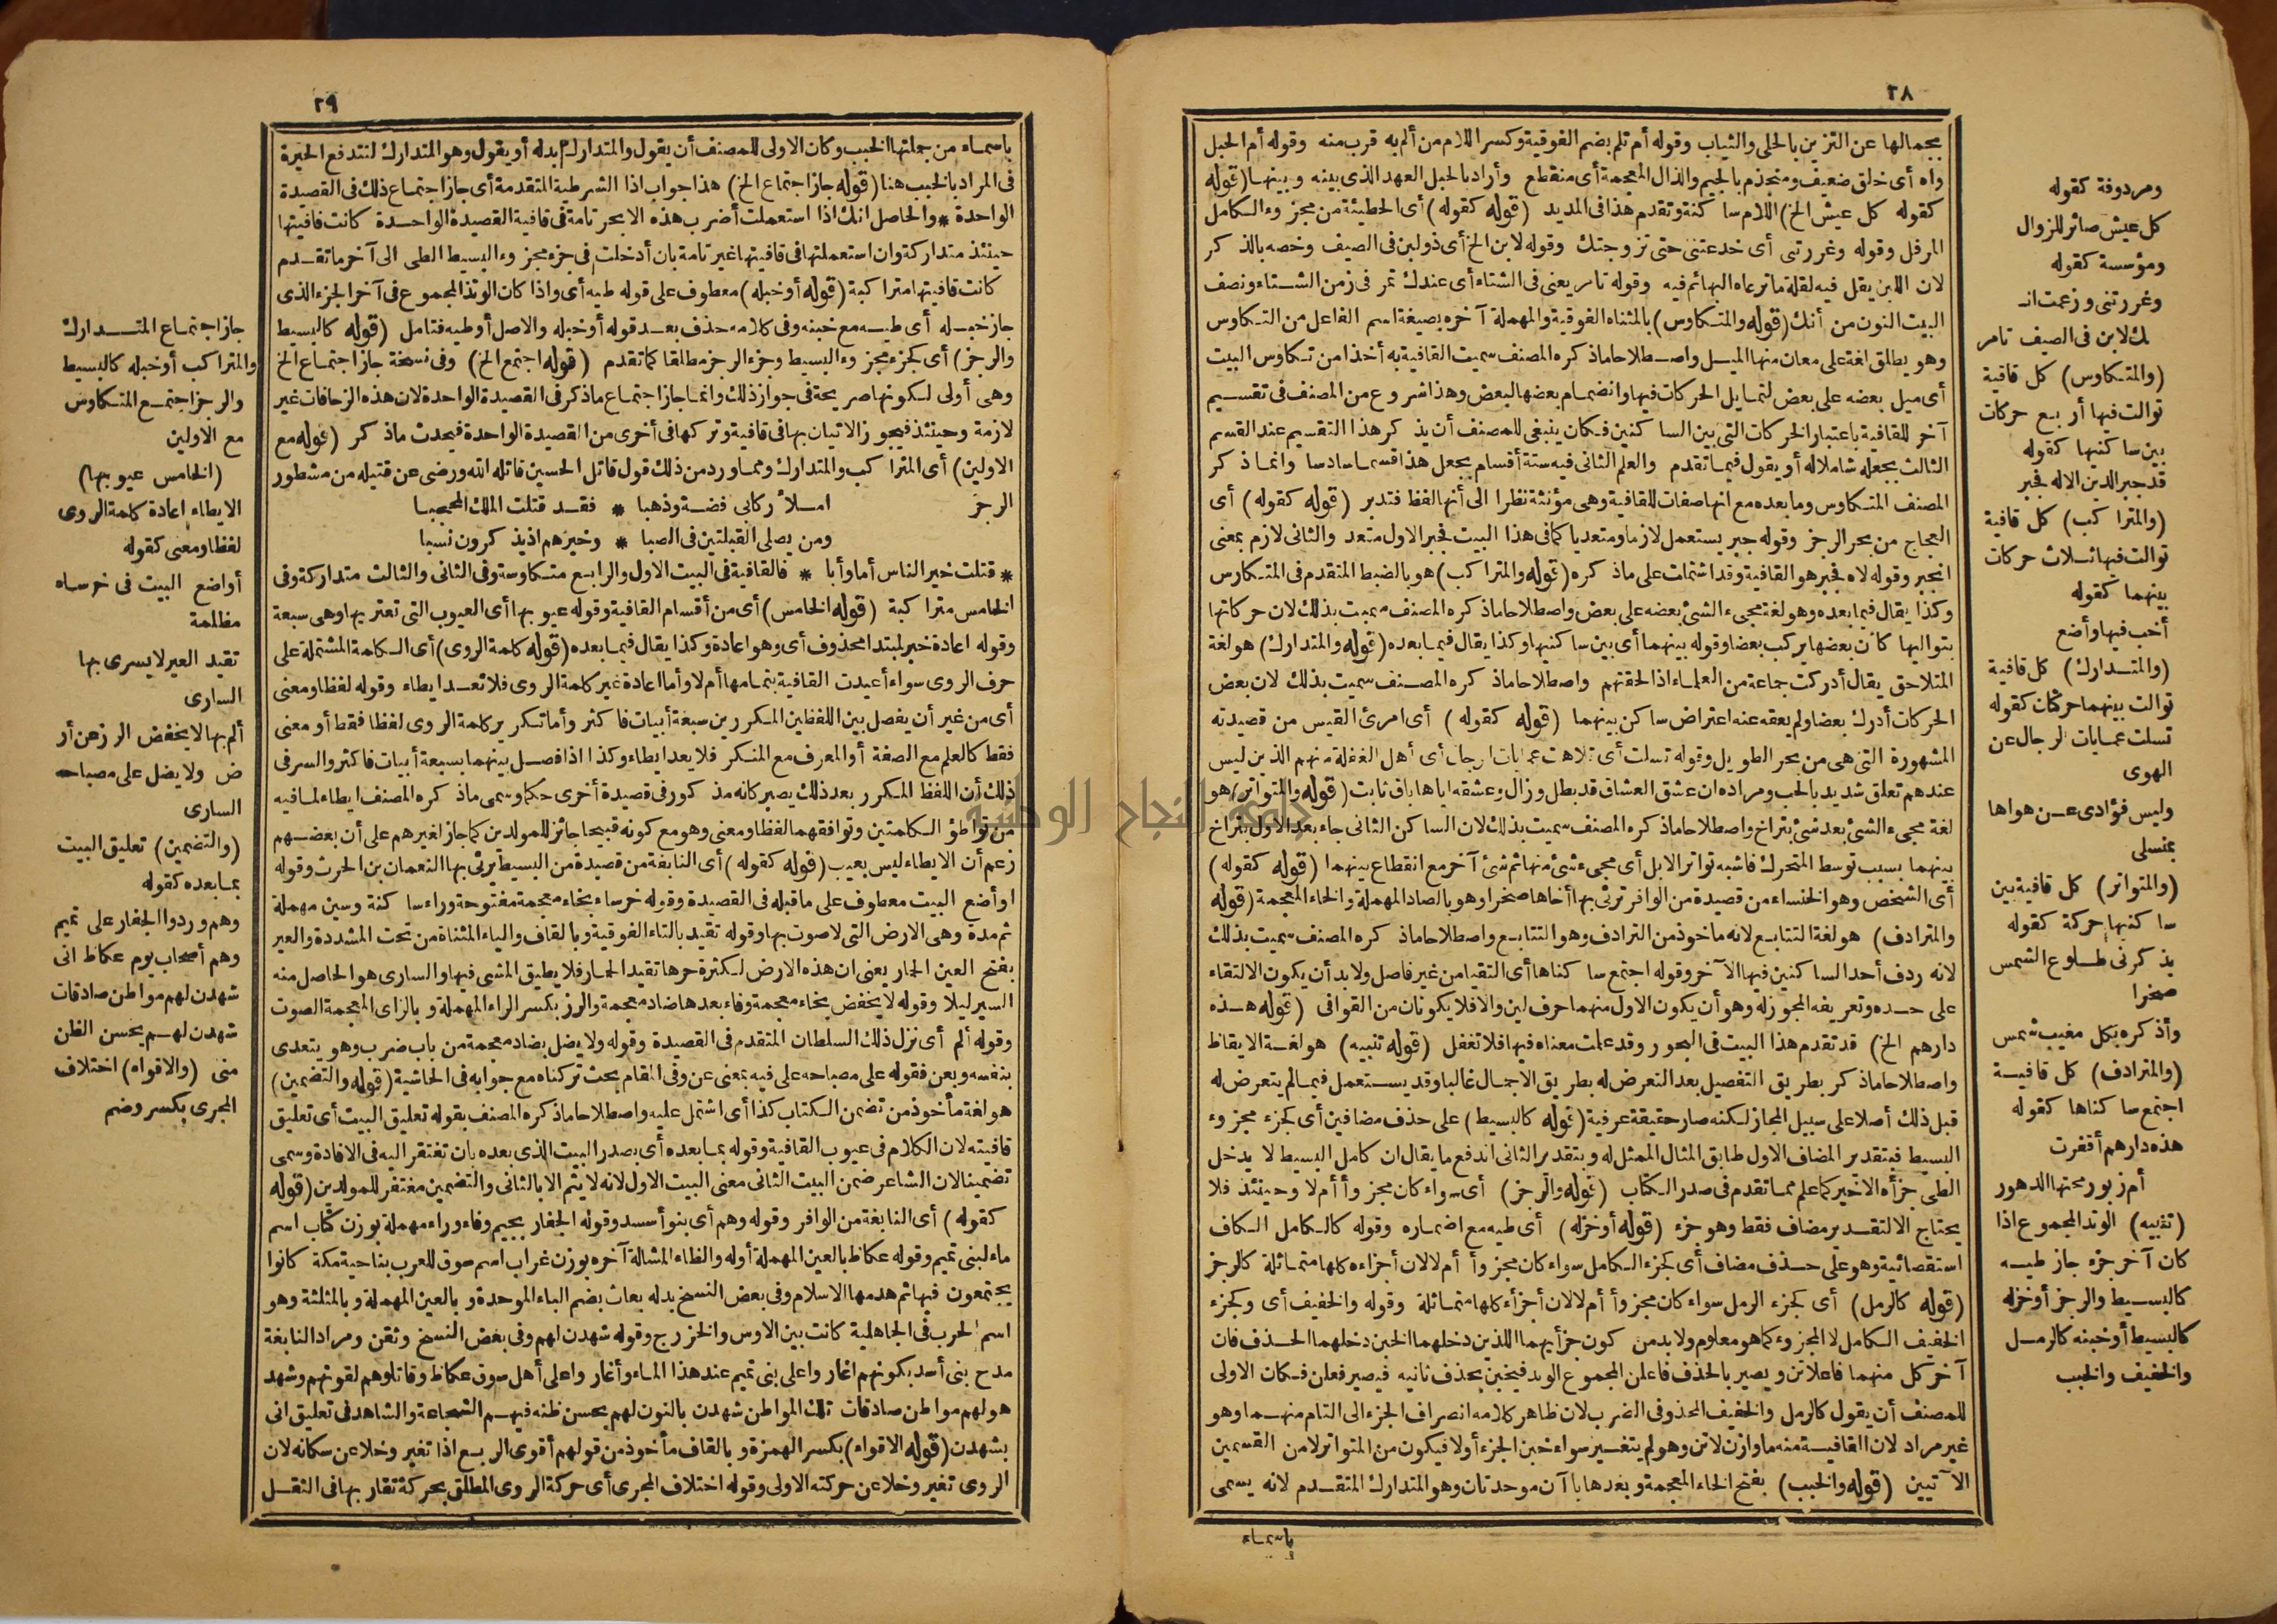 ٢٨
بجمالها عن التزين بالحلى والثياب وقوله أم تلم بضم الفوقية وكسر اللام من ألم به قرب منه وقوله أم الحبل
واه أى خلق ضعيف ومنجذم بالجيم والذال المعجمة أى منقطع وأراد بالحبل العهد الذى بينه وبينها (قوله
كقوله كل عيش الخ) اللام ساكنة وتقدم هذا فى المديد (قوله كقوله) أى الحطيئة من مجزوء الكامل
المرفل وقوله وغررتنى أى خدعتنى حتى تزوجتك وقوله لابن الخ أى ذولبن فى الصيف وخصه بالذكر
لان اللبن يقل فيه لقلة ما ترعاه البهائم فيه وقوله تامر يعنى فى الشتاء أى عندك تمر فى زمن الشتاء ونصف
البيت النون من أنك (قوله والمتكاوس) بالمثناه الفوقية والمهملة آخره بصيغة اسم الفاعل من التكاوس
وهو يطلق لغة على معان منها الميل واصطلاحا ماذكره المصنف سميت القافية به أخذا من تكاوس البيت
أى ميل بعضه على بعض لتمايل الحركات فيها وانضمام بعضها لبعض وهذا شروع من المصنف فى تقسيم
آخر للقافية باعتبار الحركات التى بين الساكنين فكان ينبغى للمصنف أن يذكر هذا التقسيم عند القسم
الثالث بجعله شاملا له أو يقول فيما تقدم والعلم الثانى فيه ستة أقسام بجعل هذا قسما سادسا وانما ذكر
المصنف المتكاوس وما بعده مع انها صفات للقافية وهى مؤنثة نظرا الى أنها لفظ فتدبر (قوله كقوله) أى
العجاج من بحر الرجز وقوله جبر يستعمل لازما ومتعديا كما فى هذا البيت فجبر الاول متعد والثانى لازم بمعنى
انجبر وقوله لاه فجبر هو القافية وقد اشتملت على ماذكره (قوله والمتراكب) هو بالضبط المتقدم فى المتكاوس
وكذا يقال فيما بعده وهو لغة مجىء الشئ بعضه على بعض واصطلاحا ماذكره المصنف سميت بذلك لان حركاتها
بتواليها كان بعضها يركب بعضا وقوله بينهما أى بين ساكنيها وكذا يقال فيما بعده (قوله والمتدارك) هو لغة
المتلاحق يقال أدركت جماعة من العلماء اذا لحقتهم واصطلاحا ماذكره المصنف سميت بذلك لان بعض
الحركات أدرك بعضا ولم يعقه عنه اعتراض ساكن بينهما (قوله كقوله) أى امرئ القيس من قصيدته
المشهورة التى هى من بحر الطويل وقوله تسلت أى تلاهت عمايات الرجال أى أهل الغفلة منهم الذين ليس
عندهم تعلق شديد بالحب ومراده ان عشق العشاق قد بطل وزال وعشقه اياها باق ثابت (قوله والمتواتر) هو
لغة مجىء الشئ بعد شئ بتراخ واصطلاحا ماذكره المصنف سميت بذلك لان الساكن الثانى جاء بعد الاول بتراخ
بينهما بسبب توسط المتحرك فاشبه تواتر الابل أى مجىء شئ منها ثم شئ آخر مع انقطاع بينهما (قوله كقوله)
أى الشخص وهو الخنساء من قصيدة من الوافر ترثى بها أخاها صخرا وهو بالصاد المهملة والخاء المعجمة (قوله
والمترادف) هو لغة التتابع لانه ماخوذ من الترادف وهو التتابع واصطلاحا ماذكره المصنف سميت بذلك
لانه ردف أحد الساكنين فيها الآخر وقوله اجتمع ساكناها أى التقيا من غير فاصل ولابد أن يكون الالتقاء
على حده وتعريفه المجوز له وهو أن يكون الاول منهما حرف لين والا فلا يكونان من القوافى (قوله هذه
دارهم الخ) قد تقدم هذا البيت فى البحور وقد علمت معناه فيها فلا تغفل (قوله تنبيه) هو لغة الايقاظ
واصطلاحا ماذكر بطريق التفصيل بعد التعرض له بطريق الاجمال غالبا وقد يستعمل فيما لم يتعرض له
قبل ذلك أصلا على سبيل المجاز لكنه صار حقيقة عرفية (قوله كالبسيط) على حذف مضافين أى كجزء مجزوء
البسيط فبتقدير المضاف الاول طابق المثال الممثل له وبتقدير الثانى اندفع ما يقال ان كامل البسيط لا يدخل
الطى جزأه الاخير كما علم مما تقدم فى صدر الكتاب (قوله والرجز) أى سواء كان مجزوأ أم لا وحينئذ فلا
يحتاج الا لتقدير مضاف فقط وهو جزء (قوله أو خزله) أى طيه مع اضماره وقوله كالكامل الكاف
استقصائية وهو على حذف مضاف أى كجزء الكامل سواء كان مجزوأ أم لا لان أجزاءه كلها متماثلة كالرجز
(قوله كالرمل) أى كجزء الرمل سواء كان مجزوأ أم لا لان أجزأه كلها متماثلة وقوله والخفيف أى وكجزء
الخفيف الكامل لا المجزوء كما هو معلوم ولابد من كون جزأيهما اللذين دخلهما الخبن دخلهما الحذف فان
آخر كل منهما فاعلاتن ويصير بالحذف فاعلن المجموع الوتد فيخبن بحذف ثانيه فيصير فعلن فكان الاولى
للمصنف أن يقول كالرمل والخفيف المحذوفى الضرب لان ظاهر كلامه انصراف الجزء الى التام منهما وهو
غير مراد لان القافية منه ماوازن لاتن وهو لم يتغير سواء خبن الجزء أولا فيكون من المتواتر لا من القسمين
الآتيين (قوله والخبب) بفتح الخاء المعجمة وبعدها با آن موحدتان وهو المتدارك المتقدم لانه يسمى
باسماء
ومردوفة كقوله
كل عيش صائر للزوال
ومؤسسة كقوله
وغررتنى وزعمت انـ
ـك لابن فى الصيف تامر
(والمتكاوس) كل قافية
توالت فيها أربع حركات
بين ساكنيها كقوله
قد جبر الدين الاله فجبر
(والمتراكب) كل قافية
توالت فيها ثلاث حركات
بينهما كقوله
أخب فيها وأضع
(والمتدارك) كل قافية
توالت بينهما حركتان كقوله
تسلت عمايات الرجال عن
الهوى
وليس فؤادى عن هواها
بمنسلى
(والمتواتر) كل قافية بين
ساكنيها حركة كقوله
يذكرنى طلوع الشمس
صخرا
وأذكره بكل مغيب شمس
(والمترادف) كل قافية
اجتمع ساكناها كقوله
هذه دارهم أقفرت
أم زبور محتها الدهور
(تنبيه) الوتد المجموع اذا
كان آخر جزء جاز طيه
كالبسيط والرجز أو خزله
كالبسيط أو خبنه كالرمل
والخفيف والخبب
٢٩
باسماء من جملتها الخبب وكان الاولى للمصنف أن يقول والمتدارك بدله أو يقول وهو المتدارك لتندفع الحيرة
فى المراد بالخبب هنا (قوله جاز اجتماع الخ) هذا جواب اذا الشرطية المتقدمة أى جاز اجتماع ذلك فى القصيدة
الواحدة * والحاصل انك اذا استعملت أضرب هذه الابحر تامة فى قافية القصيدة الواحدة كانت قافيتها
حينئذ متداركة وان استعملتها فى قافيتها غير تامة بان أدخلت فى جزء مجزوء البسيط الطى الى آخر ما تقدم
كانت قافيتها متراكبة (قوله أو خبله) معطوف على قوله طيه أى واذا كان الوتد المجموع فى آخر الجزء الذى
جاز خبله أى طيه مع خبنه وفى كلامه حذف بعد قوله أو خبله والاصل أو طيه فتامل (قوله كالبسيط
والرجز) أى كجزء مجزوء البسيط وجزء الرجز مطلقا كما تقدم (قوله اجتمع الخ) وفى نسخة جاز اجتماع الخ
وهى أولى لكونها صريحة فى جواز ذلك وانما جاز اجتماع ماذكر فى القصيدة الواحدة لان هذه الزحافات غير
لازمة وحينئذ فيجوز الاتيان بها فى قافية وتركها فى أخرى من القصيدة الواحدة فيحدث ماذكر (قوله مع
الاولين) أى المتراكب والمتدارك ومما ورد من ذلك قول قاتل الحسين قاتله الله ورضى عن قتيله من مشطور
الرجز املأ ركابى فضة وذهبا * فقد قتلت الملك المحجبا
ومن يصلى القبلتين فى الصبا * وخيرهم اذ يذكرون نسبا
* قتلت خير الناس أما وأبا * فالقافية فى البيت الاول والرابع متكاوسة وفى الثانى والثالث متداركة وفى
الخامس متراكبة (قوله الخامس) أى من أقسام القافية وقوله عيوبها أى العيوب التى تعتريها وهى سبعة
وقوله اعادة خبر لمبتدا محذوف أى وهو اعادة وكذا يقال فيما بعده (قوله كلمة الروى) أى الكلمة المشتملة على
حرف الروى سواء أعيدت القافية بتمامها أم لا وأما اعادة غير كلمة الروى فلا تعد ايطاء وقوله لفظا ومعنى
أى من غير أن يفصل بين اللفظين المكررين سبعة أبيات فاكثر وأما تكرير كلمة الروى لفظا فقط أو معنى
فقط كالعلم مع الصفة أو المعرف مع المنكر فلا يعد ايطاء وكذا اذا فصل بينهما بسبعة أبيات فاكثر والسر فى
ذلك أن اللفظ المكرر بعد ذلك يصير كانه مذكور فى قصيدة أخرى حكما وسمى ماذكره المصنف ايطاء لما فيه
من تواطؤ الكلمتين وتوافقهما لفظا ومعنى وهو مع كونه قبيحا جائز للمولدين كما جاز لغيرهم على أن بعضهم
زعم أن الايطاء ليس بعيب (قوله كقوله) أى النابغة من قصيدة من البسيط يرثى بها النعمان بن الحرث وقوله
اوأضع البيت معطوف على ماقبله فى القصيدة وقوله خرساء بخاء معجمة مفتوحة وراء ساكنة وسين مهملة
ثم مدة وهى الارض التى لاصوت بها وقوله تقيد بالتاء الفوقية وبالقاف والياء المثناة من تحت المشددة والعير
بفتح العين الحمار يعنى ان هذه الارض لكثرة حرها تقيد الحمار فلا يطيق المشى فيها والسارى هو الحاصل منه
السير ليلا وقوله لا يخفض بخاء معجمة وفاء بعدها ضاد معجمة والرز بكسر الراء المهملة وبالزاى المعجمة الصوت
وقوله ألم أى نزل ذلك السلطان المتقدم فى القصيدة وقوله ولا يضل بضاد معجمة من باب ضرب وهو يتعدى
بنفسه وبعن فقوله على مصباحه على فيه بمعنى عن وفى المقام بحث تركناه مع جوابه فى الحاشية (قوله والتضمين)
هو لغة مأخوذ من تضمن الكتاب كذا أى اشتمل عليه واصطلاحا ماذكره المصنف بقوله تعليق البيت أى تعليق
قافيته لان الكلام فى عيوب القافية وقوله بما بعده أى بصدر البيت الذى بعده بان تفتقر اليه فى الافادة وسمى
تضمينا لان الشاعر ضمن البيت الثانى معنى البيت الاول لانه لا يتم الا بالثانى والتضمين مغتفر للمولدين (قوله
كقوله) أى النابغة من الوافر وقوله وهم أى بنو أسد وقوله الجفار بجيم وفاء وراء مهملة بوزن كتاب اسم
ماء لبنى تميم وقوله عكاظ بالعين المهملة أوله والظاء المشالة آخره بوزن غراب اسم سوق للعرب بناحية مكة كانوا
يجتمعون فيها ثم هدمها الاسلام وفى بعض النسخ بدله بعاث بضم الباء الموحدة وبالعين المهملة وبالمثلثة وهو
اسم لحرب فى الجاهلية كانت بين الاوس والخزرج وقوله شهدن لهم وفى بعض النسخ وثقن ومراد النابغة
مدح بنى أسد بكونهم اغاروا على بنى تميم عند هذا الماء وأغاروا على أهل سوق عكاظ وقاتلوهم لقوتهم وشهد
هو لهم مواطن صادقات تلك المواطن شهدن بالنون لهم بحسن ظنه فيهم الشجاعة والشاهد فى تعليق انى
بشهدن (قوله الاقواء) بكسر الهمزة وبالقاف مأخوذ من قولهم أقوى الربع اذا تغير وخلا عن سكانه لان
الروى تغير وخلا عن حركته الاولى وقوله اختلاف المجرى أى حركة الروى المطلق بحركة تقاربها فى الثقل
جاز اجتماع المتدارك
والمتراكب أو خبله كالبسيط
والرجز اجتمع المتكاوس
مع الاولين
(الخامس عيوبها)
الايطاء اعادة كلمة الروى
لفظا ومعنى كقوله
أواضع البيت فى خرساء
مظلمة
تقيد العير لا يسرى بها
السارى
ألم بها لا يخفض الرز عن أر
ض ولا يضل على مصباحه
السارى
(والتضمين) تعليق البيت
بما بعده كقوله
وهم وردوا الجفار على تميم
وهم أصحاب يوم عكاظ انى
شهدن لهم مواطن صادقات
شهدن لهم بحسن الظن
منى (والاقواء) اختلاف
المجرى بكسر وضم
جامعة النجاح الوطنية